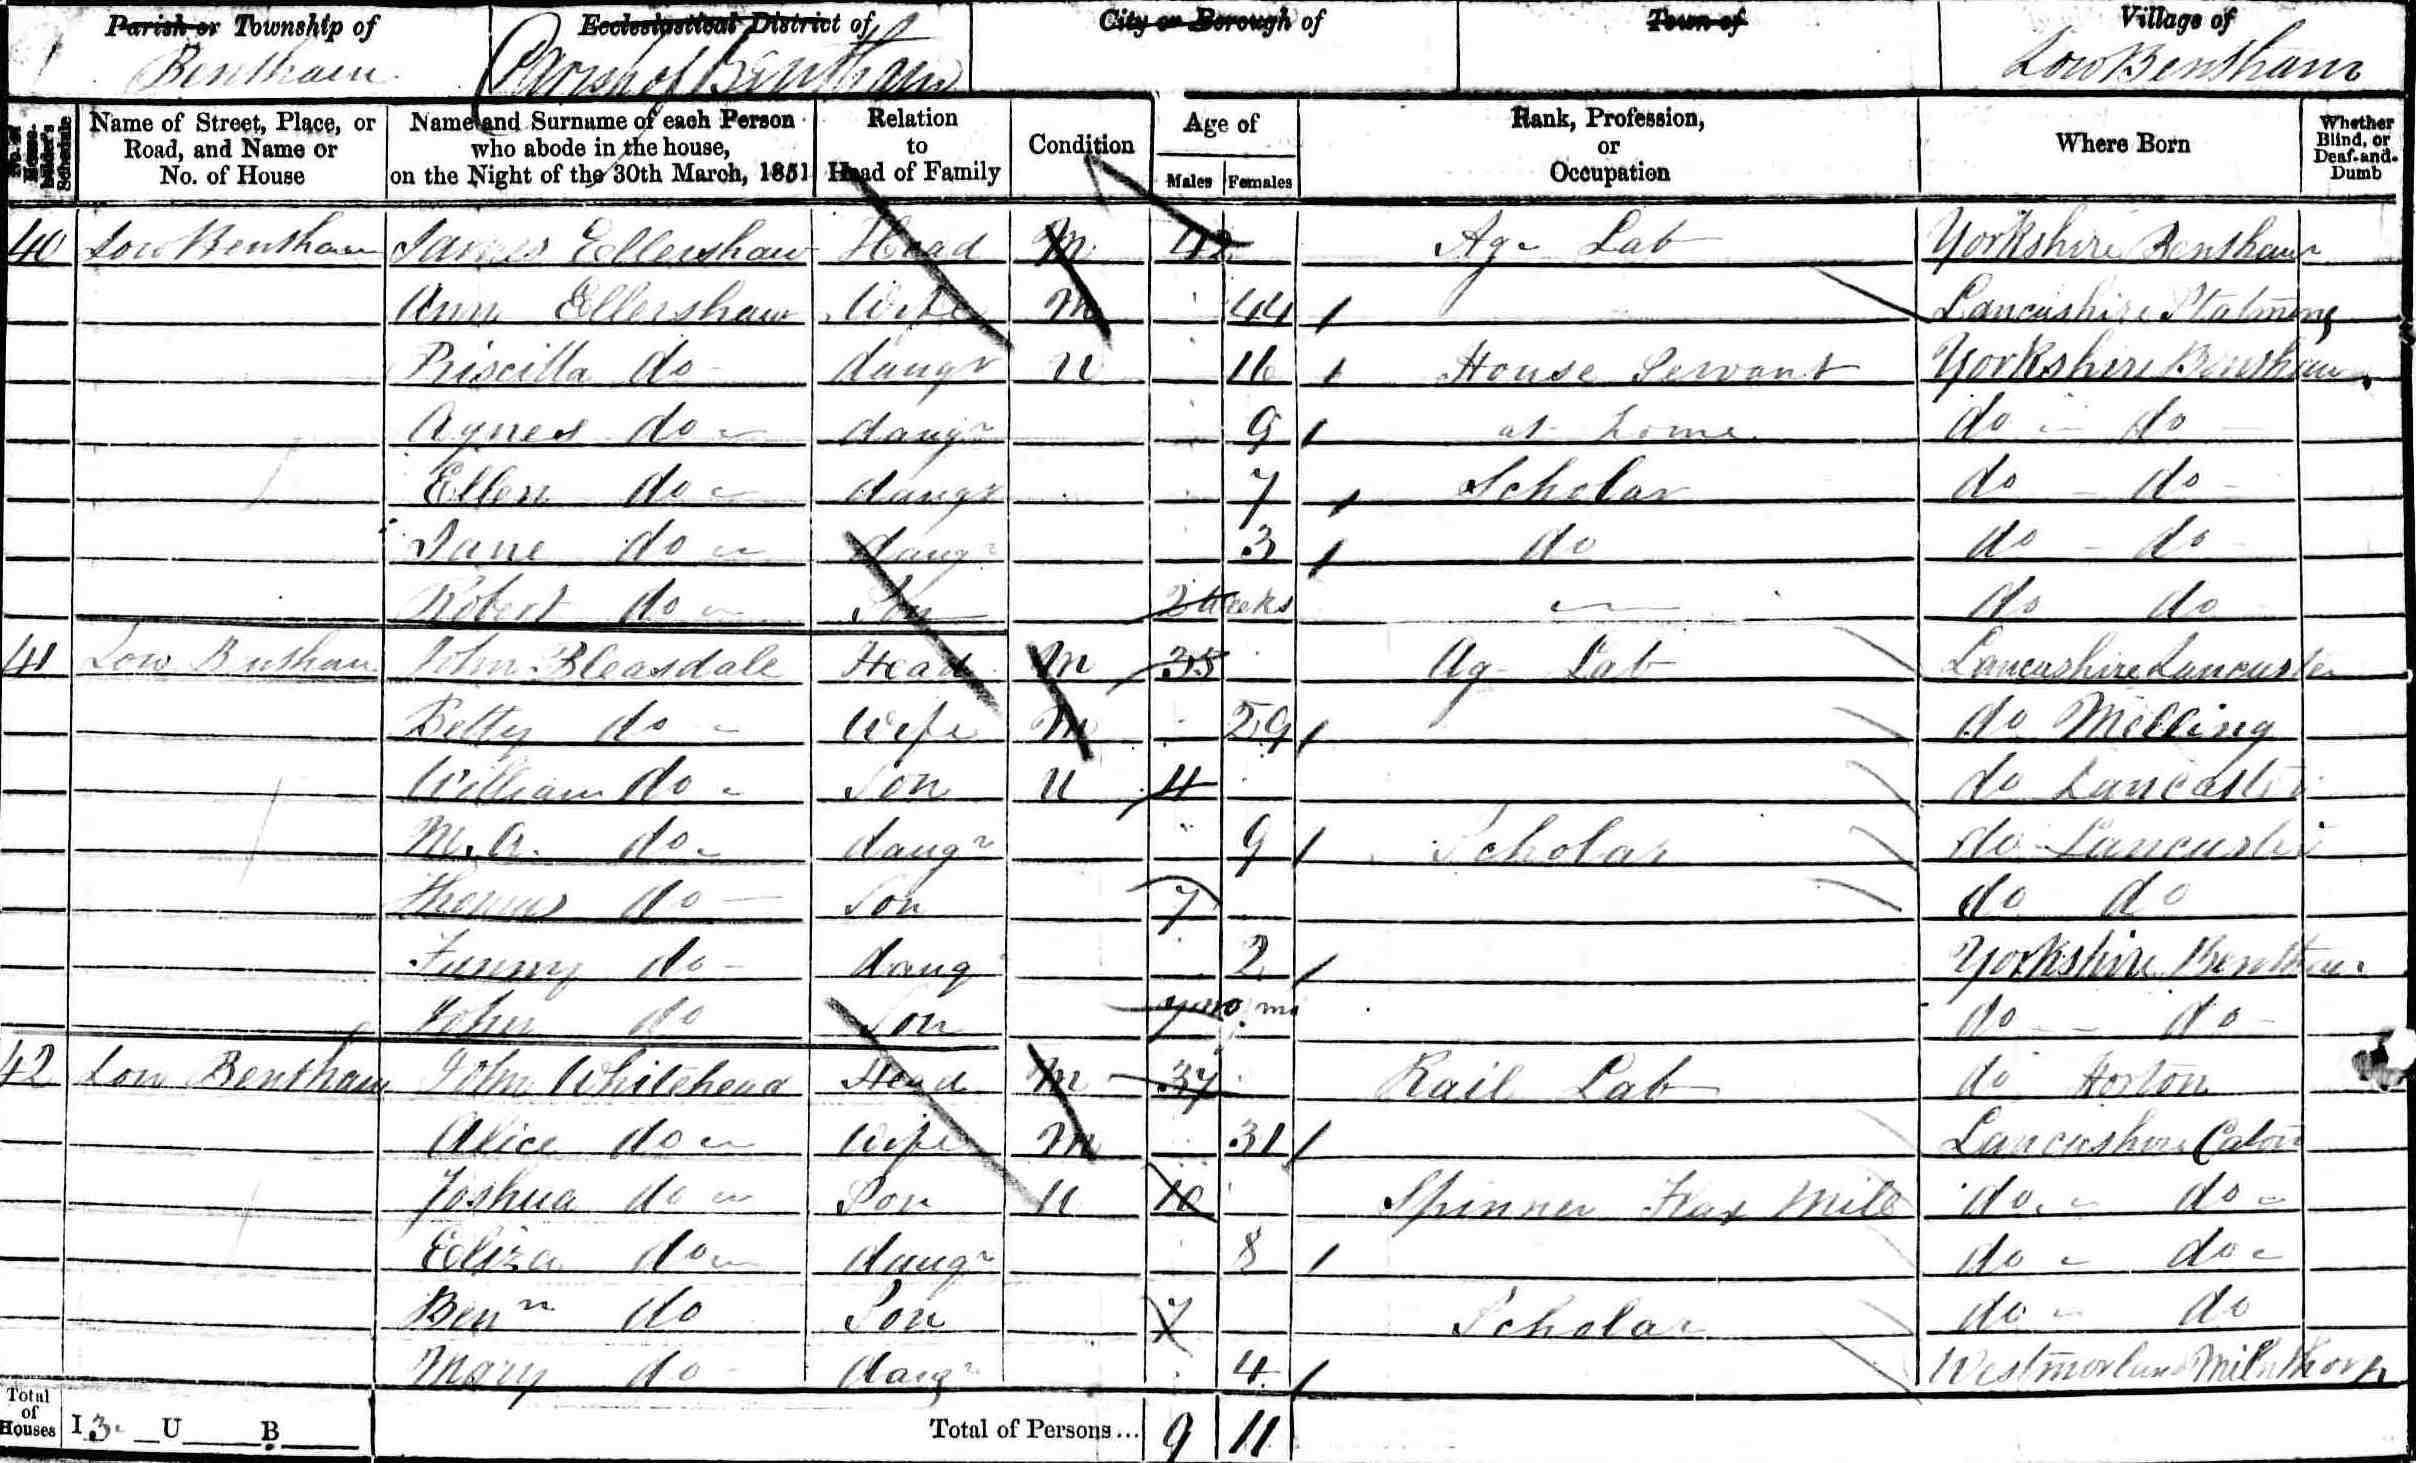 Parish or Township of
Bentham
Ecclesiastical District of
Parish of Bentham
City or Borough of
Town of
Village of
Low Bentham
No. of House-holder's Schedule
Name of Street, Place, or Road, and Name or No. of House
Name and Surname of each Person who abode in the house, on the Night of the 30th March, 1851
Relation to Head of Family
Condition
Age of
Males Females
Rank, Profession, or Occupation
Where Born
Whether Blind, or Deaf-and-Dumb
40 Low Bentham James Ellershaw Head M 42 Ag Lab Yorkshire Bentham
Ann Ellershaw Wife M 44 Lancashire
Priscilla do U daugr 16 House Servant Yorkshire Bentham
Agnes do daugr 9 at home do do
Ellen do daugr 7 Scholar do do
Jane do daugr 3 do do do
Robert do Son 2 weeks do do
41 Low Bentham John Bleasdale Head M 35 Ag Lab Lancashire Lancaster
Betty do Wife M 29 do Melling
William do Son U 11 do Lancaster
M. A. do daugr 9 Scholar do Lancaster
Thomas do Son 7 do do
Funny do daug 2 Yorkshire Bentham
John do Son mo do do
42 Low Bentham John Whitehead Head M 37 Rail Lab do Horton
Alice do Wife M 31 Lancashire Caton
Joshua do Son U 10 Spinner Flax Mill do do
Eliza do daugr 8 do do
Benn do Son 7 Scholar do do
Mary do daugr 4 Westmorland Milnthorp
Total of Houses I 3 U B Total of Persons... 9 11